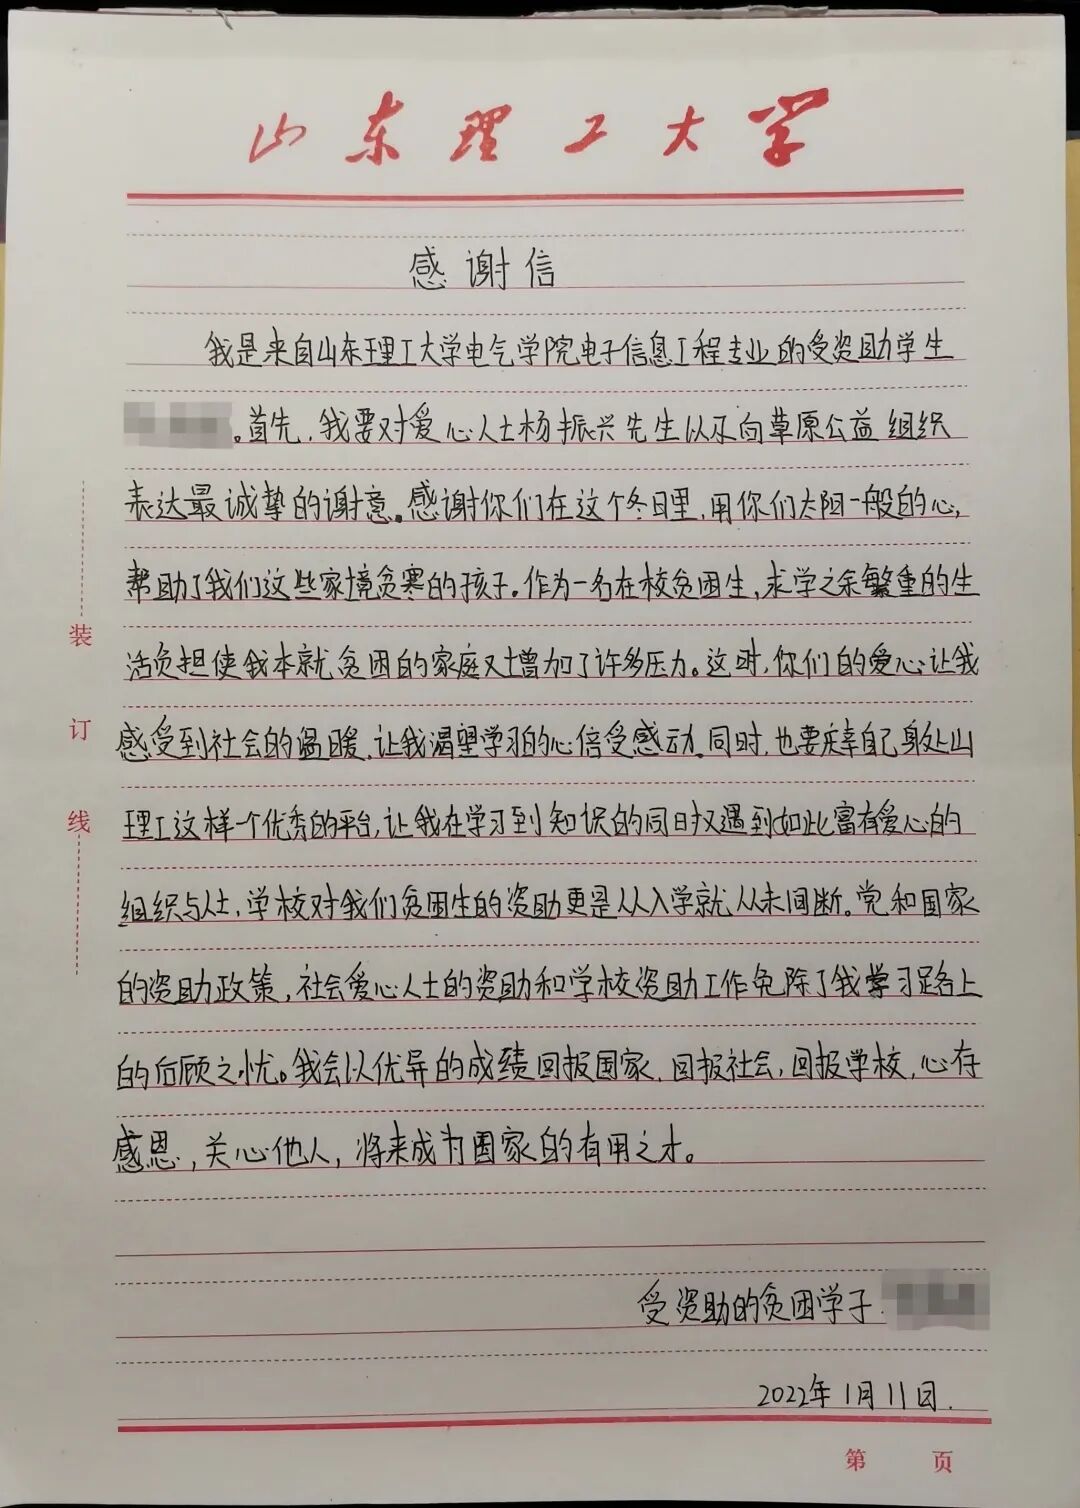 山东理工大学
感谢信
我是来自山东理工大学电气学院电子信息工程专业的受资助学生
。首先，我要对爱心人士杨振兴先生以及向草原公益组织
表达最诚挚的谢意。感谢你们在这个冬日里，用你们太阳一般的心，
帮助了我们这些家境贫寒的孩子。作为一名在校贫困生，求学之余繁重的生
活负担使我本就贫困的家庭又增加了许多压力。这时，你们的爱心让我
感受到社会的温暖，让我渴望学习的心倍受感动。同时，也要庆幸自己身处山
理工这样一个优秀的平台，让我在学习到知识的同时又遇到如此富有爱心的
组织与人士，学校对我们贫困生的资助更是从入学就从未间断。党和国家
的资助政策，社会爱心人士的资助和学校资助工作免除了我学习路上
的后顾之忧。我会以优异的成绩回报国家，回报社会，回报学校，心存
感恩，关心他人，将来成为国家的有用之才。
受资助的贫困学子：
2022年1月11日.
装
订
线
第 页